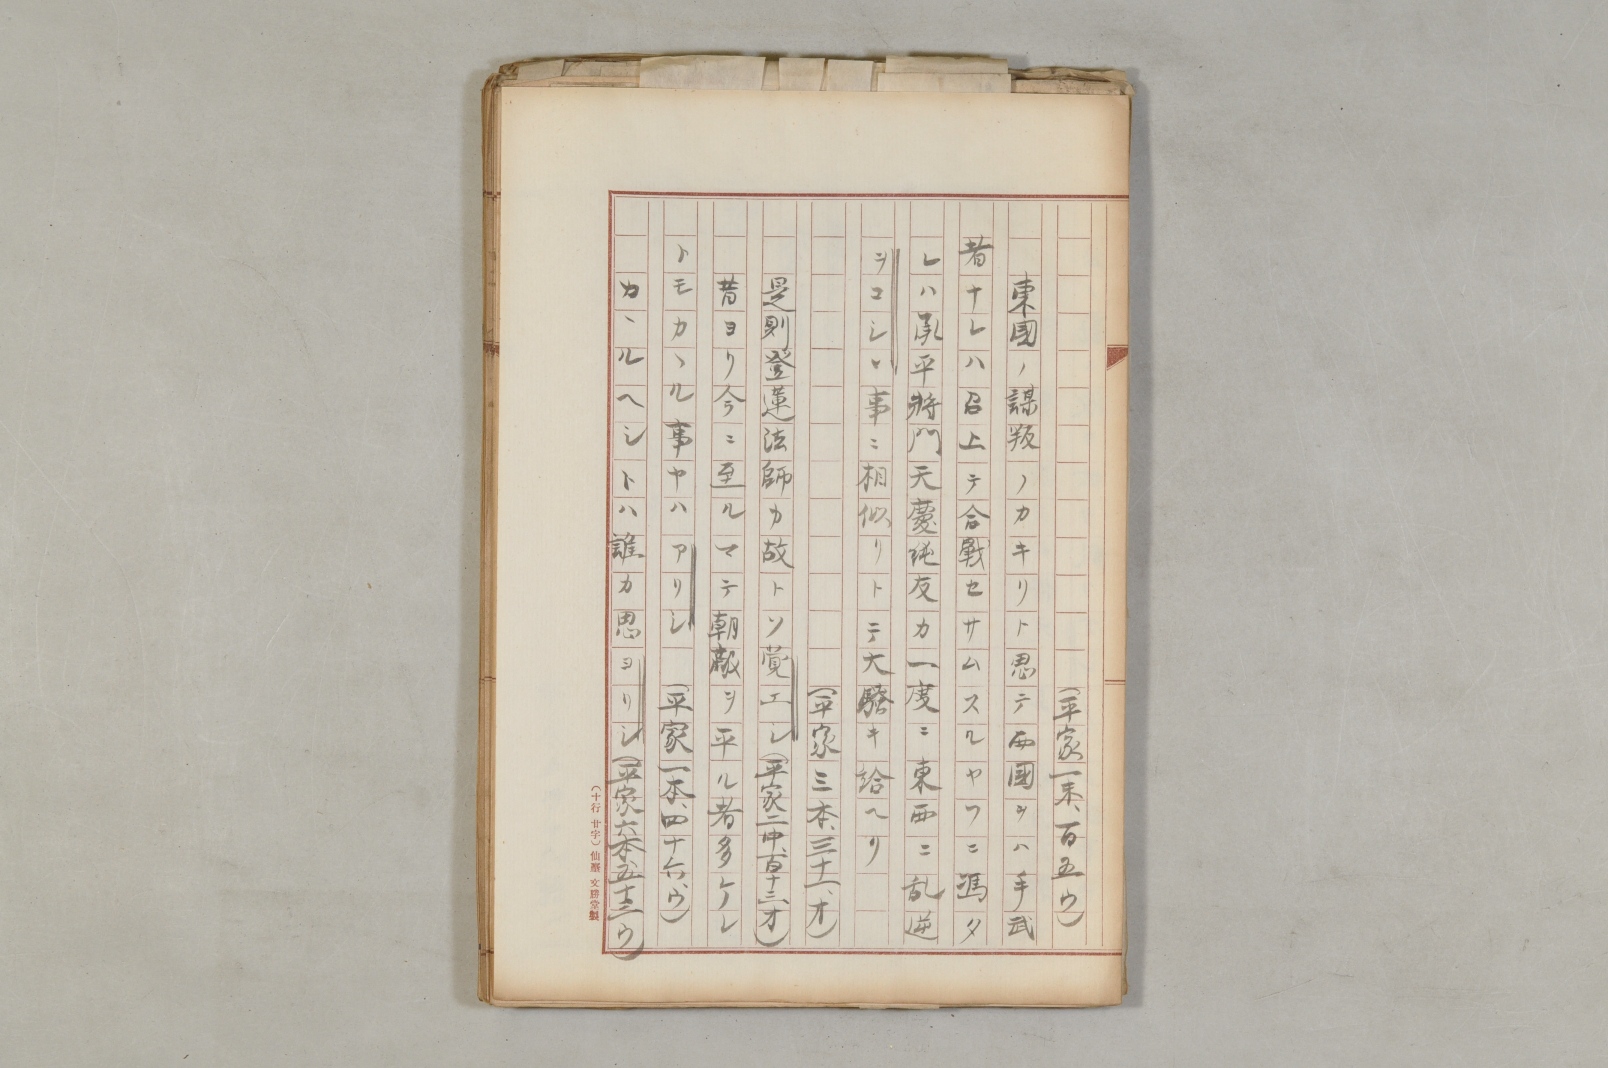 (平家一末、百五ウ)
東國ノ謀叛ノカキリト思テ西國ヲハ手武
者ナレハ召上テ合戰セサムスルヤワニ馮タ
レハ承平將門天慶純友カ一度ニ東西ニ乱逆
ヲコシヽ事ニ相似リトテ大騒キ給ヘリ
(平家三本、三十一、オ)
是則登蓮法師カ故トソ覚エシ(平家二中、百十三オ)
昔ヨリ今ニ至ルマテ朝敵ヲ平ル者多ケレ
トモカヽル事ヤハアリシ (平家一本、四十六、ウ)
カヽルヘシトハ誰カ思ヨリシ(平家六本五十三ウ)
(十行 廿字) 仙臺 文勝堂製